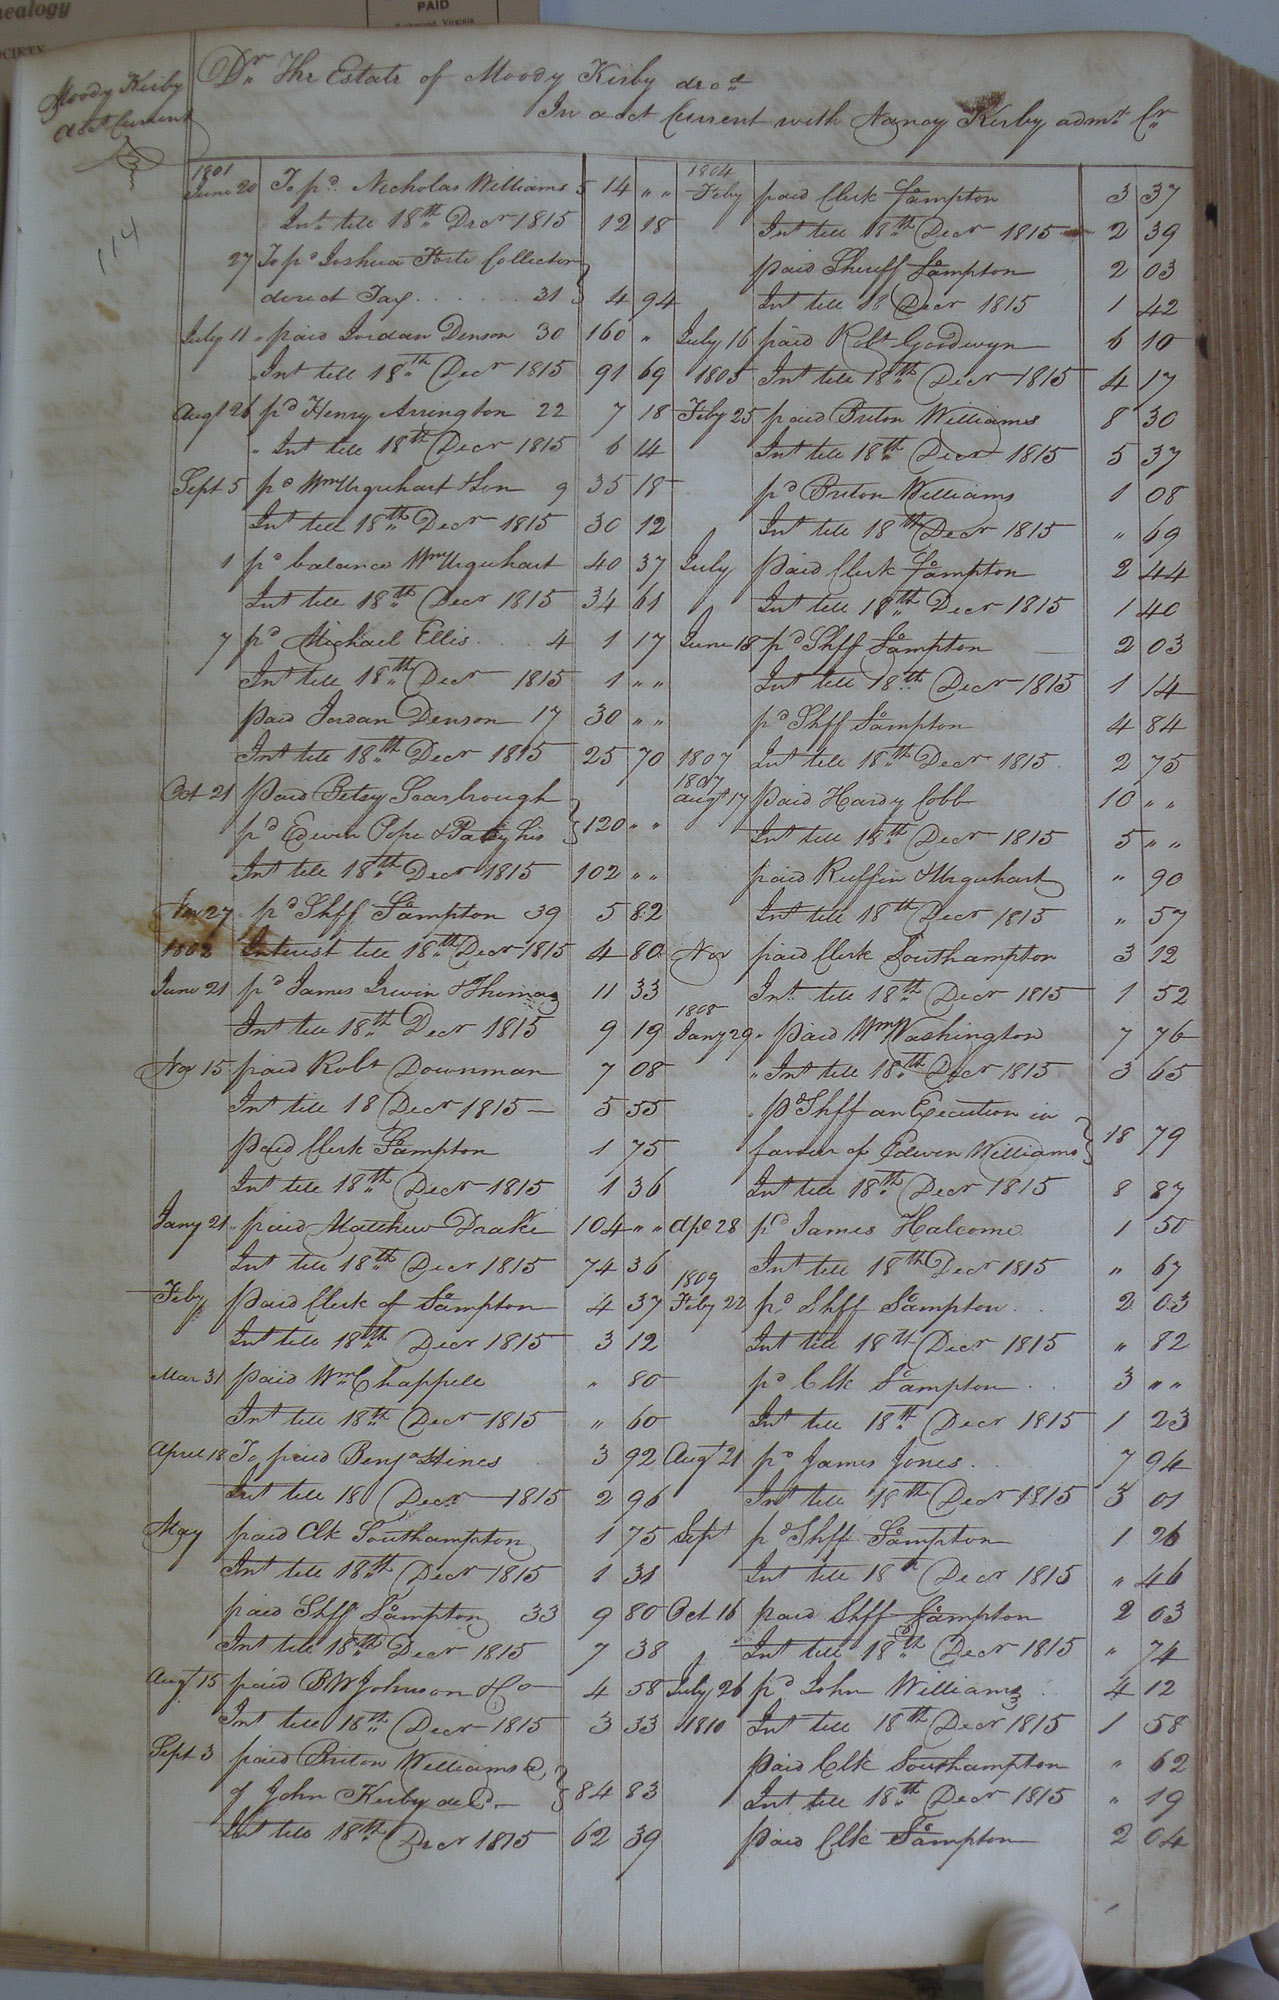 nealogy
PAID
Richmond, Virginia
Moody Kirby
acct Current
114
Dr. The Estate of Moody Kirby decd
In acct Current with Nancy Kirby admx Cr
1801
June 20 To pd. Nicholas Williams 5 14 " "
Int till 18th Decr 1815 12 18
27 To pd Joshua Forte Collector
direct Tax 31 4 94
July 11 " paid Jordan Denson 30 160 "
Int till 18th Decr 1815 91 69
Augt 26 pd Henry Arrington 22 7 18
" Int till 18th Decr 1815 6 14
Sept 5 pd Wm Urquhart & Son 9 35 18
Int till 18th Decr 1815 30 12
1 pd balance Wm Urquhart 40 37
Int till 18th Decr 1815 34 61
7 pd Michael Ellis 4 1 17
Int till 18th Decr 1815 1 " "
paid Jordan Denson 17 30 " "
Int till 18th Decr 1815 25 70
Oct 21 Paid Betsy Scarbrough
pd Edwin Pope & Patsy his 120 " "
Int till 18th Decr 1815 102 " "
27 pd Shff S'ampton 39 5 82
1802 Interest till 18th Decr 1815 4 80
June 21 pd James Irwin & Thomas 11 33
Int till 18th Decr 1815 9 19
Nov 15 paid Robt Downman 7 08
Int till 18 Decr 1815 5 55
paid Clerk S'ampton 1 75
Int till 18th Decr 1815 1 36
Jany 21 " paid Matthew Drake 104 " "
Int till 18th Decr 1815 74 36
Feby paid Clerk of S'ampton 4 37
Int till 18th Decr 1815 3 12
Mar 31 paid Wm Chappell " 80
Int till 18th Decr 1815 " 60
April 18 To paid Benja Hines 3 92
Int till 18 Decr 1815 2 96
May paid Clk Southampton 1 75
Int till 18th Decr 1815 1 31
paid Shff S'ampton 33 9 80
Int till 18th Decr 1815 7 38
Augt 15 paid B W Johnson & Co 4 58
Int till 18th Decr 1815 3 33
Sept 3 paid Briton Williams
of John Kirby decd 84 83
Int till 18th Decr 1815 62 39
1804
Feby paid Clerk S'ampton 3 37
Int till 18th Decr 1815 2 39
paid Sheriff S'ampton 2 03
Int till 18 Decr 1815 1 42
July 16 paid Robt Goodwyn 6 10
1805 Int till 18th Decr 1815 4 17
Feby 25 paid Briton Williams 8 30
Int till 18th Decr 1815 5 37
pd Briton Williams 1 08
Int till 18th Decr 1815 " 69
July paid Clerk S'ampton 2 44
Int till 18th Decr 1815 1 40
June 18 pd Shff S'ampton 2 03
Int till 18th Decr 1815 1 14
pd Shff S'ampton 4 84
1807 Int till 18th Decr 1815 2 75
1807
Augt 17 paid Hardy Cobb 10 " "
Int till 18th Decr 1815 5 " "
paid Ruffin & Urquhart " 90
Int till 18th Decr 1815 " 57
Nov paid Clerk Southampton 3 12
Int till 18th Decr 1815 1 52
1808
Jany 29 " paid Wm Washington 7 76
" Int till 18th Decr 1815 3 65
" pd Shff an Execution in
favour of Edwin Williams 18 79
Int till 18th Decr 1815 8 87
Apl 28 pd James Halcome 1 50
Int till 18th Decr 1815 " 67
1809
Feby 22 pd Shff S'ampton 2 03
Int till 18th Decr 1815 " 82
pd Clk S'ampton 3 " "
Int till 18th Decr 1815 1 23
Augt 21 pd James Jones 7 94
Int till 18th Decr 1815 3 01
Sept pd Shff S'ampton 1 26
Int till 18th Decr 1815 " 46
Oct 16 paid Shff S'ampton 2 03
Int till 18th Decr 1815 " 74
July 26 pd John Williams 4 12
1810 Int till 18th Decr 1815 1 58
paid Clk Southampton " 62
Int till 18th Decr 1815 " 19
paid Clk S'ampton 2 04